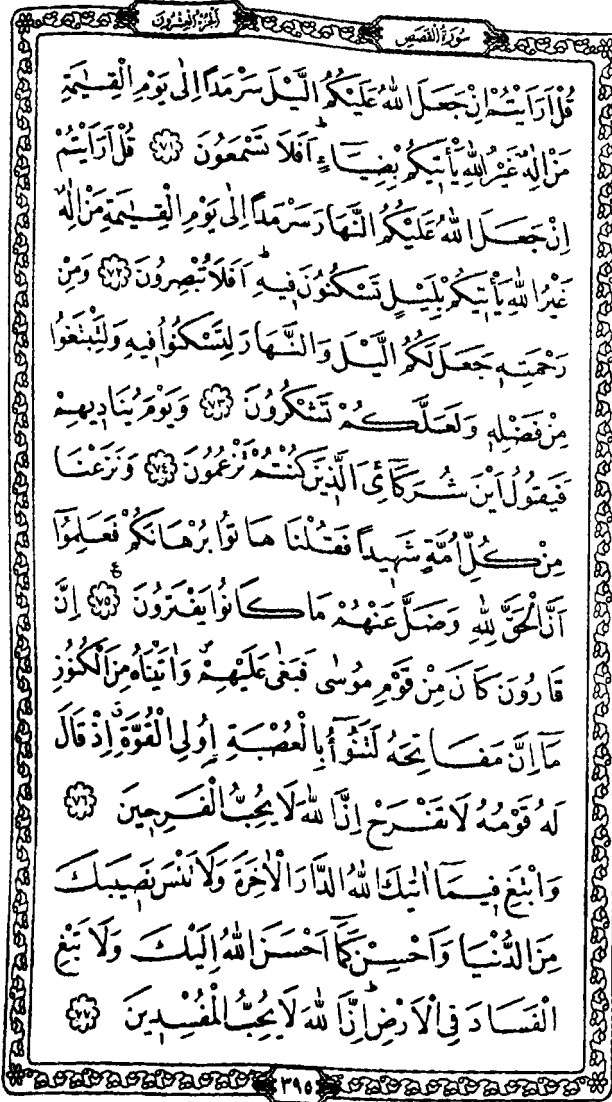 سُورَةُ الْقَصَصِ
اَلْجُزْءُ الْعِشْرُونَ
قُلْ اَرَاَيْتُمْ اِنْ جَعَلَ اللّٰهُ عَلَيْكُمُ الَّيْلَ سَرْمَدًا اِلٰى يَوْمِ الْقِيٰمَةِ
مَنْ اِلٰهٌ غَيْرُ اللّٰهِ يَأْتٖيكُمْ بِضِيَٓاءٍۜ اَفَلَا تَسْمَعُونَ ﴿٧١﴾ قُلْ اَرَاَيْتُمْ
اِنْ جَعَلَ اللّٰهُ عَلَيْكُمُ النَّهَارَ سَرْمَدًا اِلٰى يَوْمِ الْقِيٰمَةِ مَنْ اِلٰهٌ
غَيْرُ اللّٰهِ يَأْتٖيكُمْ بِلَيْلٍ تَسْكُنُونَ فٖيهِۜ اَفَلَا تُبْصِرُونَ ﴿٧٢﴾ وَمِنْ
رَحْمَتِهٖ جَعَلَ لَكُمُ الَّيْلَ وَالنَّهَارَ لِتَسْكُنُوا فٖيهِ وَلِتَبْتَغُوا
مِنْ فَضْلِهٖ وَلَعَلَّكُمْ تَشْكُرُونَ ﴿٧٣﴾ وَيَوْمَ يُنَادٖيهِمْ
فَيَقُولُ اَيْنَ شُرَكَٓاءِيَ الَّذٖينَ كُنْتُمْ تَزْعُمُونَ ﴿٧٤﴾ وَنَزَعْنَا
مِنْ كُلِّ اُمَّةٍ شَهٖيدًا فَقُلْنَا هَاتُوا بُرْهَانَكُمْ فَعَلِمُٓوا
اَنَّ الْحَقَّ لِلّٰهِ وَضَلَّ عَنْهُمْ مَا كَانُوا يَفْتَرُونَ ﴿٧٥﴾ ع اِنَّ
قَارُونَ كَانَ مِنْ قَوْمِ مُوسٰى فَبَغٰى عَلَيْهِمْۖ وَاٰتَيْنَاهُ مِنَ الْكُنُوزِ
مَٓا اِنَّ مَفَاتِحَهُ لَتَنُٓوأُ بِالْعُصْبَةِ اُولِي الْقُوَّةِۗ اِذْ قَالَ
لَهُ قَوْمُهُ لَا تَفْرَحْ اِنَّ اللّٰهَ لَا يُحِبُّ الْفَرِحٖينَ ﴿٧٦﴾
وَابْتَغِ فٖيمَٓا اٰتٰيكَ اللّٰهُ الدَّارَ الْاٰخِرَةَ وَلَا تَنْسَ نَصٖيبَكَ
مِنَ الدُّنْيَا وَاَحْسِنْ كَمَٓا اَحْسَنَ اللّٰهُ اِلَيْكَ وَلَا تَبْغِ
الْفَسَادَ فِي الْاَرْضِۜ اِنَّ اللّٰهَ لَا يُحِبُّ الْمُفْسِدٖينَ ﴿٧٧﴾
٣٩٥